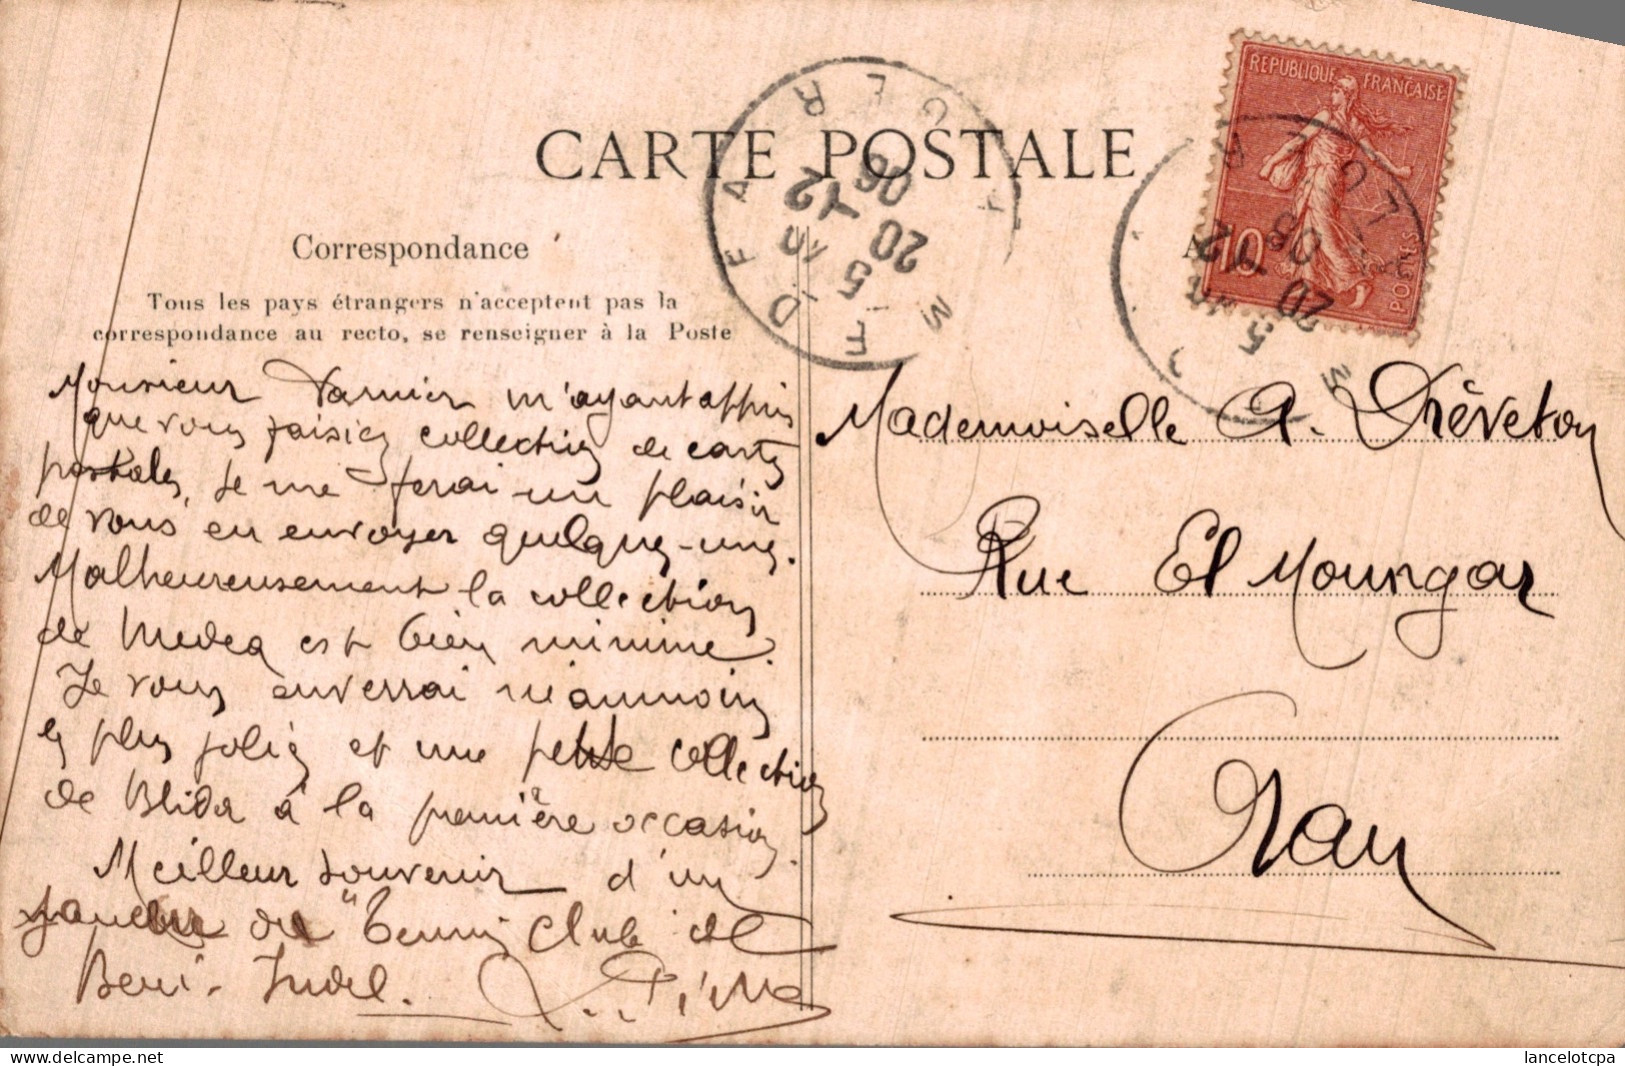 CARTE POSTALE
Correspondance
Tous les pays étrangers n'acceptent pas la
correspondance au recto, se renseigner à la Poste
Monsieur Varnier m'ayant appris
que vous faisiez collection de cartes
postales, je me ferai un plaisir
de vous en envoyer quelques-unes.
Malheureusement la collection
de Medea est bien minime.
Je vous enverrai néanmoins
les plus jolies et une petite collection
de Blida à la première occasion.
Meilleur souvenir d'un
du "Tennis Club de
Beni-
REPUBLIQUE FRANÇAISE
10
POSTES
MEDEA
ALGER
20
12
06
Mademoiselle A. Dréveton
Rue El Moungar
Oran
delcampe.net
lancelotcpa